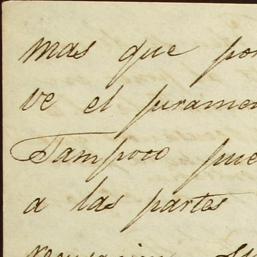 mas que por
ve el jurame
Tampoco pue
a las partes